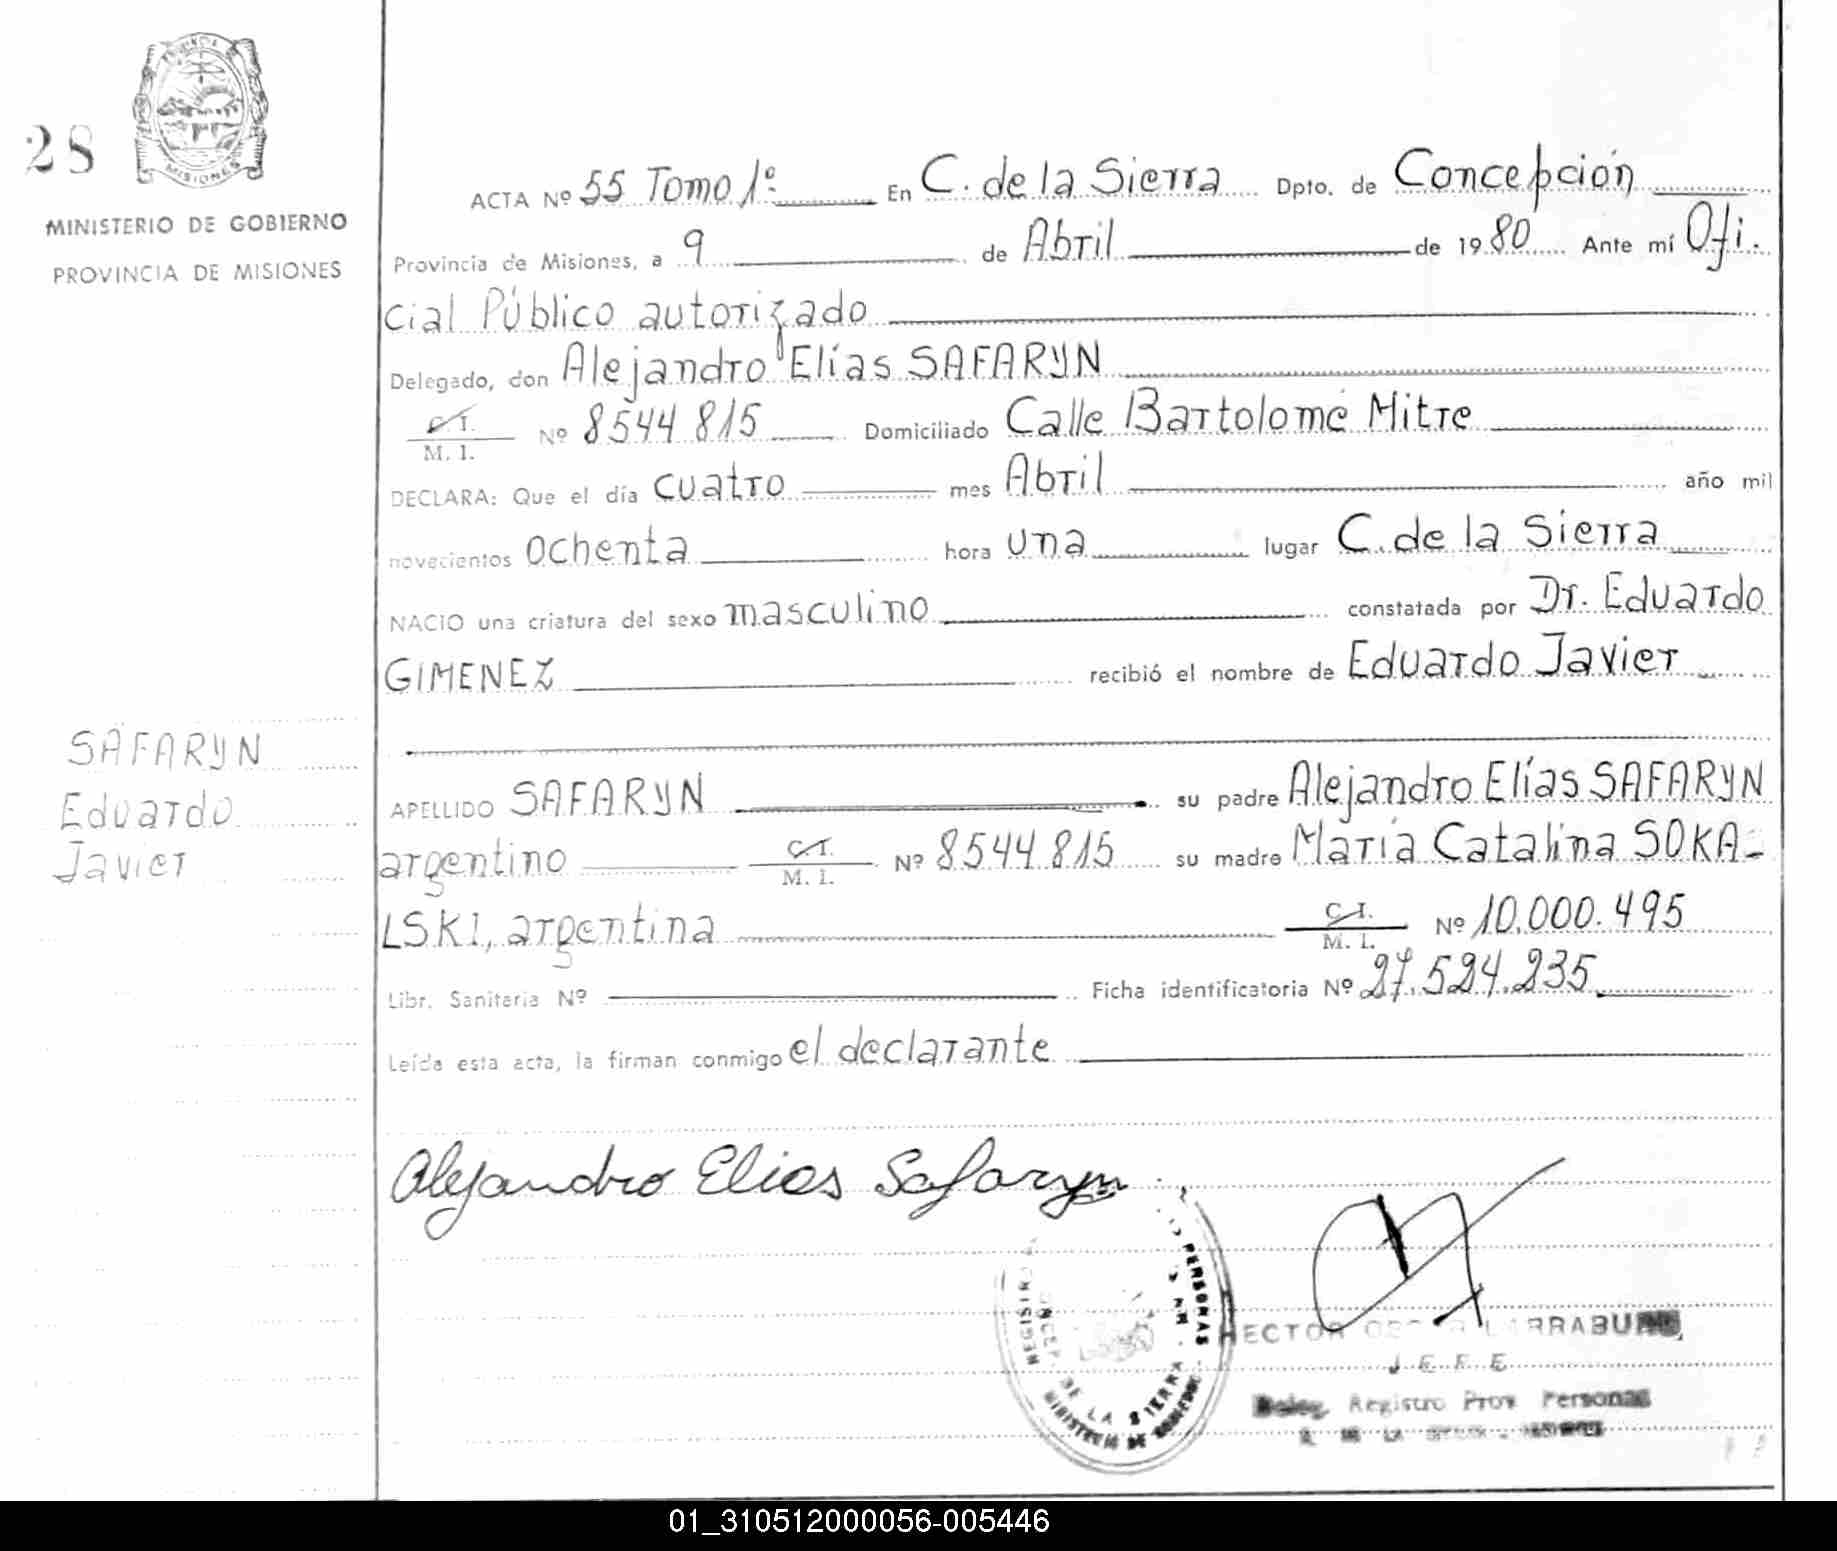 PROVINCIA DE
MISIONES
28
MINISTERIO DE GOBIERNO
PROVINCIA DE MISIONES
ACTA Nº 55 Tomo 1º En C. de la Sierra Dpto. de Concepción
Provincia de Misiones, a 9 de Abril de 1980 Ante mí Ofi.
cial Público autorizado
Delegado, don Alejandro Elías SAFARYN
C. I.
M. I. Nº 8544815 Domiciliado Calle Bartolomé Mitre
DECLARA: Que el día cuatro mes Abril año mil
novecientos ochenta hora una lugar C. de la Sierra
NACIO una criatura del sexo masculino constatada por Dr. Eduardo
GIMENEZ recibió el nombre de Eduardo Javier
SAFARYN
Eduardo
Javier
APELLIDO SAFARYN su padre Alejandro Elías SAFARYN
argentino C. I. M. I. Nº 8544815 su madre María Catalina SOKA-
LSKI, argentina C. I. M. I. Nº 10.000.495
Libr. Sanitaria Nº Ficha identificatoria Nº 27.524.235
Leída esta acta, la firman conmigo el declarante
Alejandro Elias Safaryn
PERSONAS
DE LA SIERRA
MINISTERIO DE GOBIERNO
HECTOR LARRABURU
JEFE
Deleg. Registro Prov Personas
01_310512000056-005446